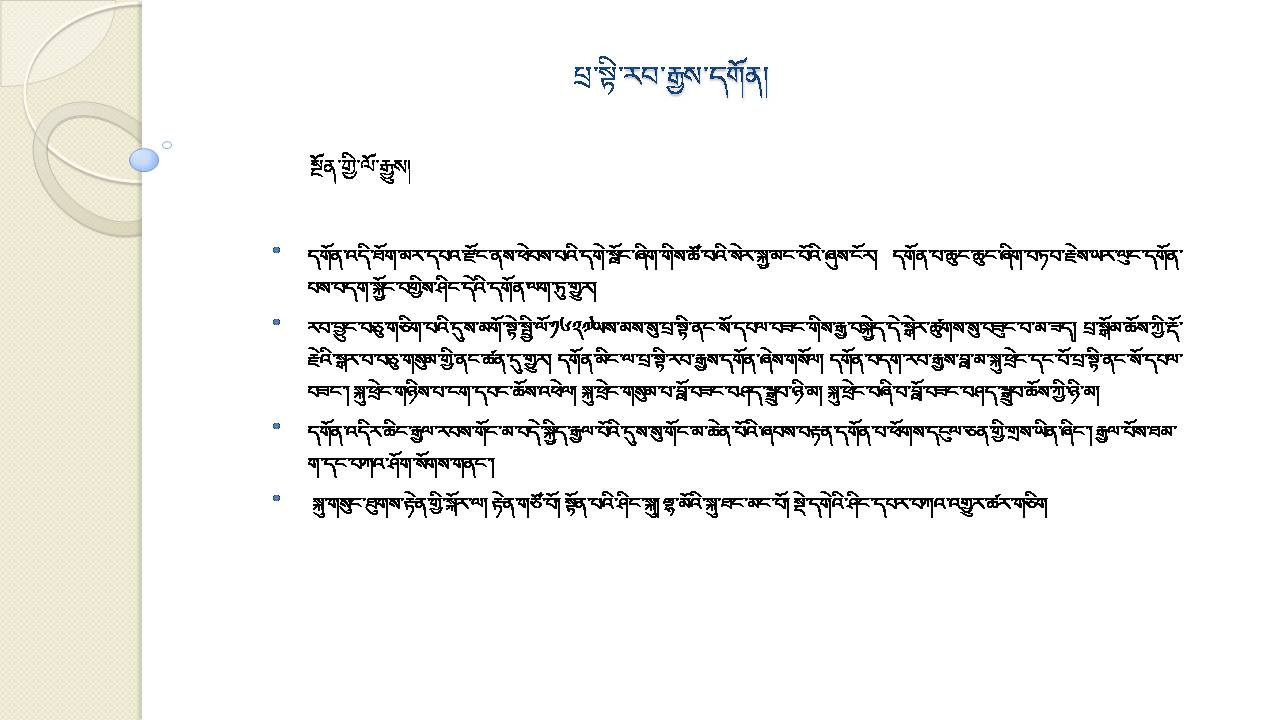 པྲ་སྟི་རབ་རྒྱས་དགོན།
སྔོན་གྱི་ལོ་རྒྱུས།
དགོན་འདི་ཐོག་མར་དཔའ་རྫོང་ནས་ཕེབས་པའི་དགེ་སློང་ཞིག་གིས་ཚོ་བའི་སེར་སྐྱ་མང་པོའི་ཞུས་ངོར། དགོན་པ་ཆུང་ཆུང་ཞིག་བཏབ་རྗེས་ཡར་ལུང་དགོན་
པས་བདག་སྐྱོང་བགྱིས་ཤིང་དེའི་དགོན་ལག་ཏུ་གྱུར།
རབ་བྱུང་བཅུ་གཅིག་པའི་དུས་མགོ་སྟེ་སྤྱི་ལོ་༡༦༢༡ཡས་མས་སུ་པྲ་སྟི་ནང་སོ་དཔལ་བཟང་གིས་རྒྱ་བསྐྱེད་དེ་སྒེར་ཚུགས་སུ་བཟུང་བ་མ་ཟད། པྲ་སྒོམ་ཆོས་ཀྱི་རྡོ་
རྗེའི་སྒར་བ་བཅུ་གསུམ་གྱི་ནང་ཚན་དུ་གྱུར། དགོན་མིང་ལ་པྲ་སྟི་རབ་རྒྱས་དགོན་ཞེས་གསོལ། དགོན་བདག་རབ་རྒྱས་བླ་མ་སྐུ་ཕྲེང་དང་པོ་པྲ་སྟི་ནང་སོ་དཔལ་
བཟང་། སྐུ་ཕྲེང་གཉིས་པ་ངག་དབང་ཆོས་འཕེལ། སྐུ་ཕྲེང་གསུམ་པ་བློ་བཟང་བཤད་སྒྲུབ་ཉི་མ། སྐུ་ཕྲེང་བཞི་པ་བློ་བཟང་བཤད་སྒྲུབ་ཆོས་ཀྱི་ཉི་མ།
དགོན་འདིར་ཆིང་རྒྱལ་རབས་གོང་མ་བདེ་སྐྱིད་རྒྱལ་པོའི་དུས་སུ་གོང་མ་ཆེན་པོའི་ཞབས་བརྟན་དགོན་པ་ཕོགས་དངུལ་ཅན་གྱི་གྲས་ཡིན་ཞིང་། རྒྱལ་པོས་ཐམ་
ག་དང་བཀའ་ཤོག་སོགས་གནང་།
སྐུ་གསུང་ཐུགས་རྟེན་གྱི་སྐོར་ལ། རྟེན་གཙོ་བོ། སྟོན་པའི་ཤིང་སྐུ། ལྷ་མོའི་སྐུ་ཐང་མང་པོ། སྡེ་དགེའི་ཤིང་དཔར་བཀའ་འགྱུར་ཚར་གཅིག